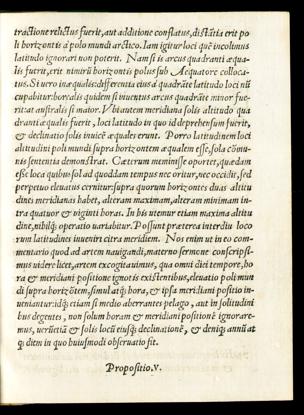 tractione relictus fuerit, aut additione conflatus, distãtia erit po
li horizontis à polo mundi arctico. Iam igitur loci quẽ incolimus
latitudo ignorari non poterit. Nam si is arcus quadranti æqua-
lis fuerit, erit nimirũ horizontis polus sub Aequatore colloca-
tus. Si vero inæqualis: differentia eius à quadrãte latitudo loci nũ
cupabitur: borealis quidem si inuentus arcus quadrãte minor fue-
rit: at australis si maior. Vbi autem meridiana solis altitudo qua
dranti æqualis fuerit, loci latitudo in quo id deprehensum fuerit,
& declinatio solis inuicẽ æquales erunt. Porro latitudinem loci
altitudini poli mundi supra horizontem æqualem esse, sola cõmu-
nis sententia demonstrat. Cæterum meminisse oportet, quædam
esse loca quibus sol ad quoddam tempus nec oritur, nec occidit, sed
perpetuo eleuatus cernitur: supra quorum horizontes duas altitu
dines meridianas habet, alteram maximam, alteram minimam in-
tra quatuor & viginti horas. In his vtenur etiam maxima altitu
dine, nihilq; operatio variabitur. Possunt præterea interdiu loco
rum latitudines inueniri citra meridiem. Nos enim vt in eo com-
mentario quod ad artem nauigandi, materno sermone conscripsi-
mus videre licet, artem excogitauimus, qua omni diei tempore, ho
ra & meridiani positione ignotis existentibus, eleuatio poli mun
di supra horizõtem, simul atq; hora, & ipsa meridiani positio in-
ueniantur: idq; etiam si medio aberrantes pelago, aut in solitudini
bus degentes, non solum horam & meridiani positionẽ ignorare-
mus, verũetiã & solis locũ eiusq; declinationẽ, & deniq; annũ at
q; diem in quo huiusmodi obseruatio fit.
Propositio. v.